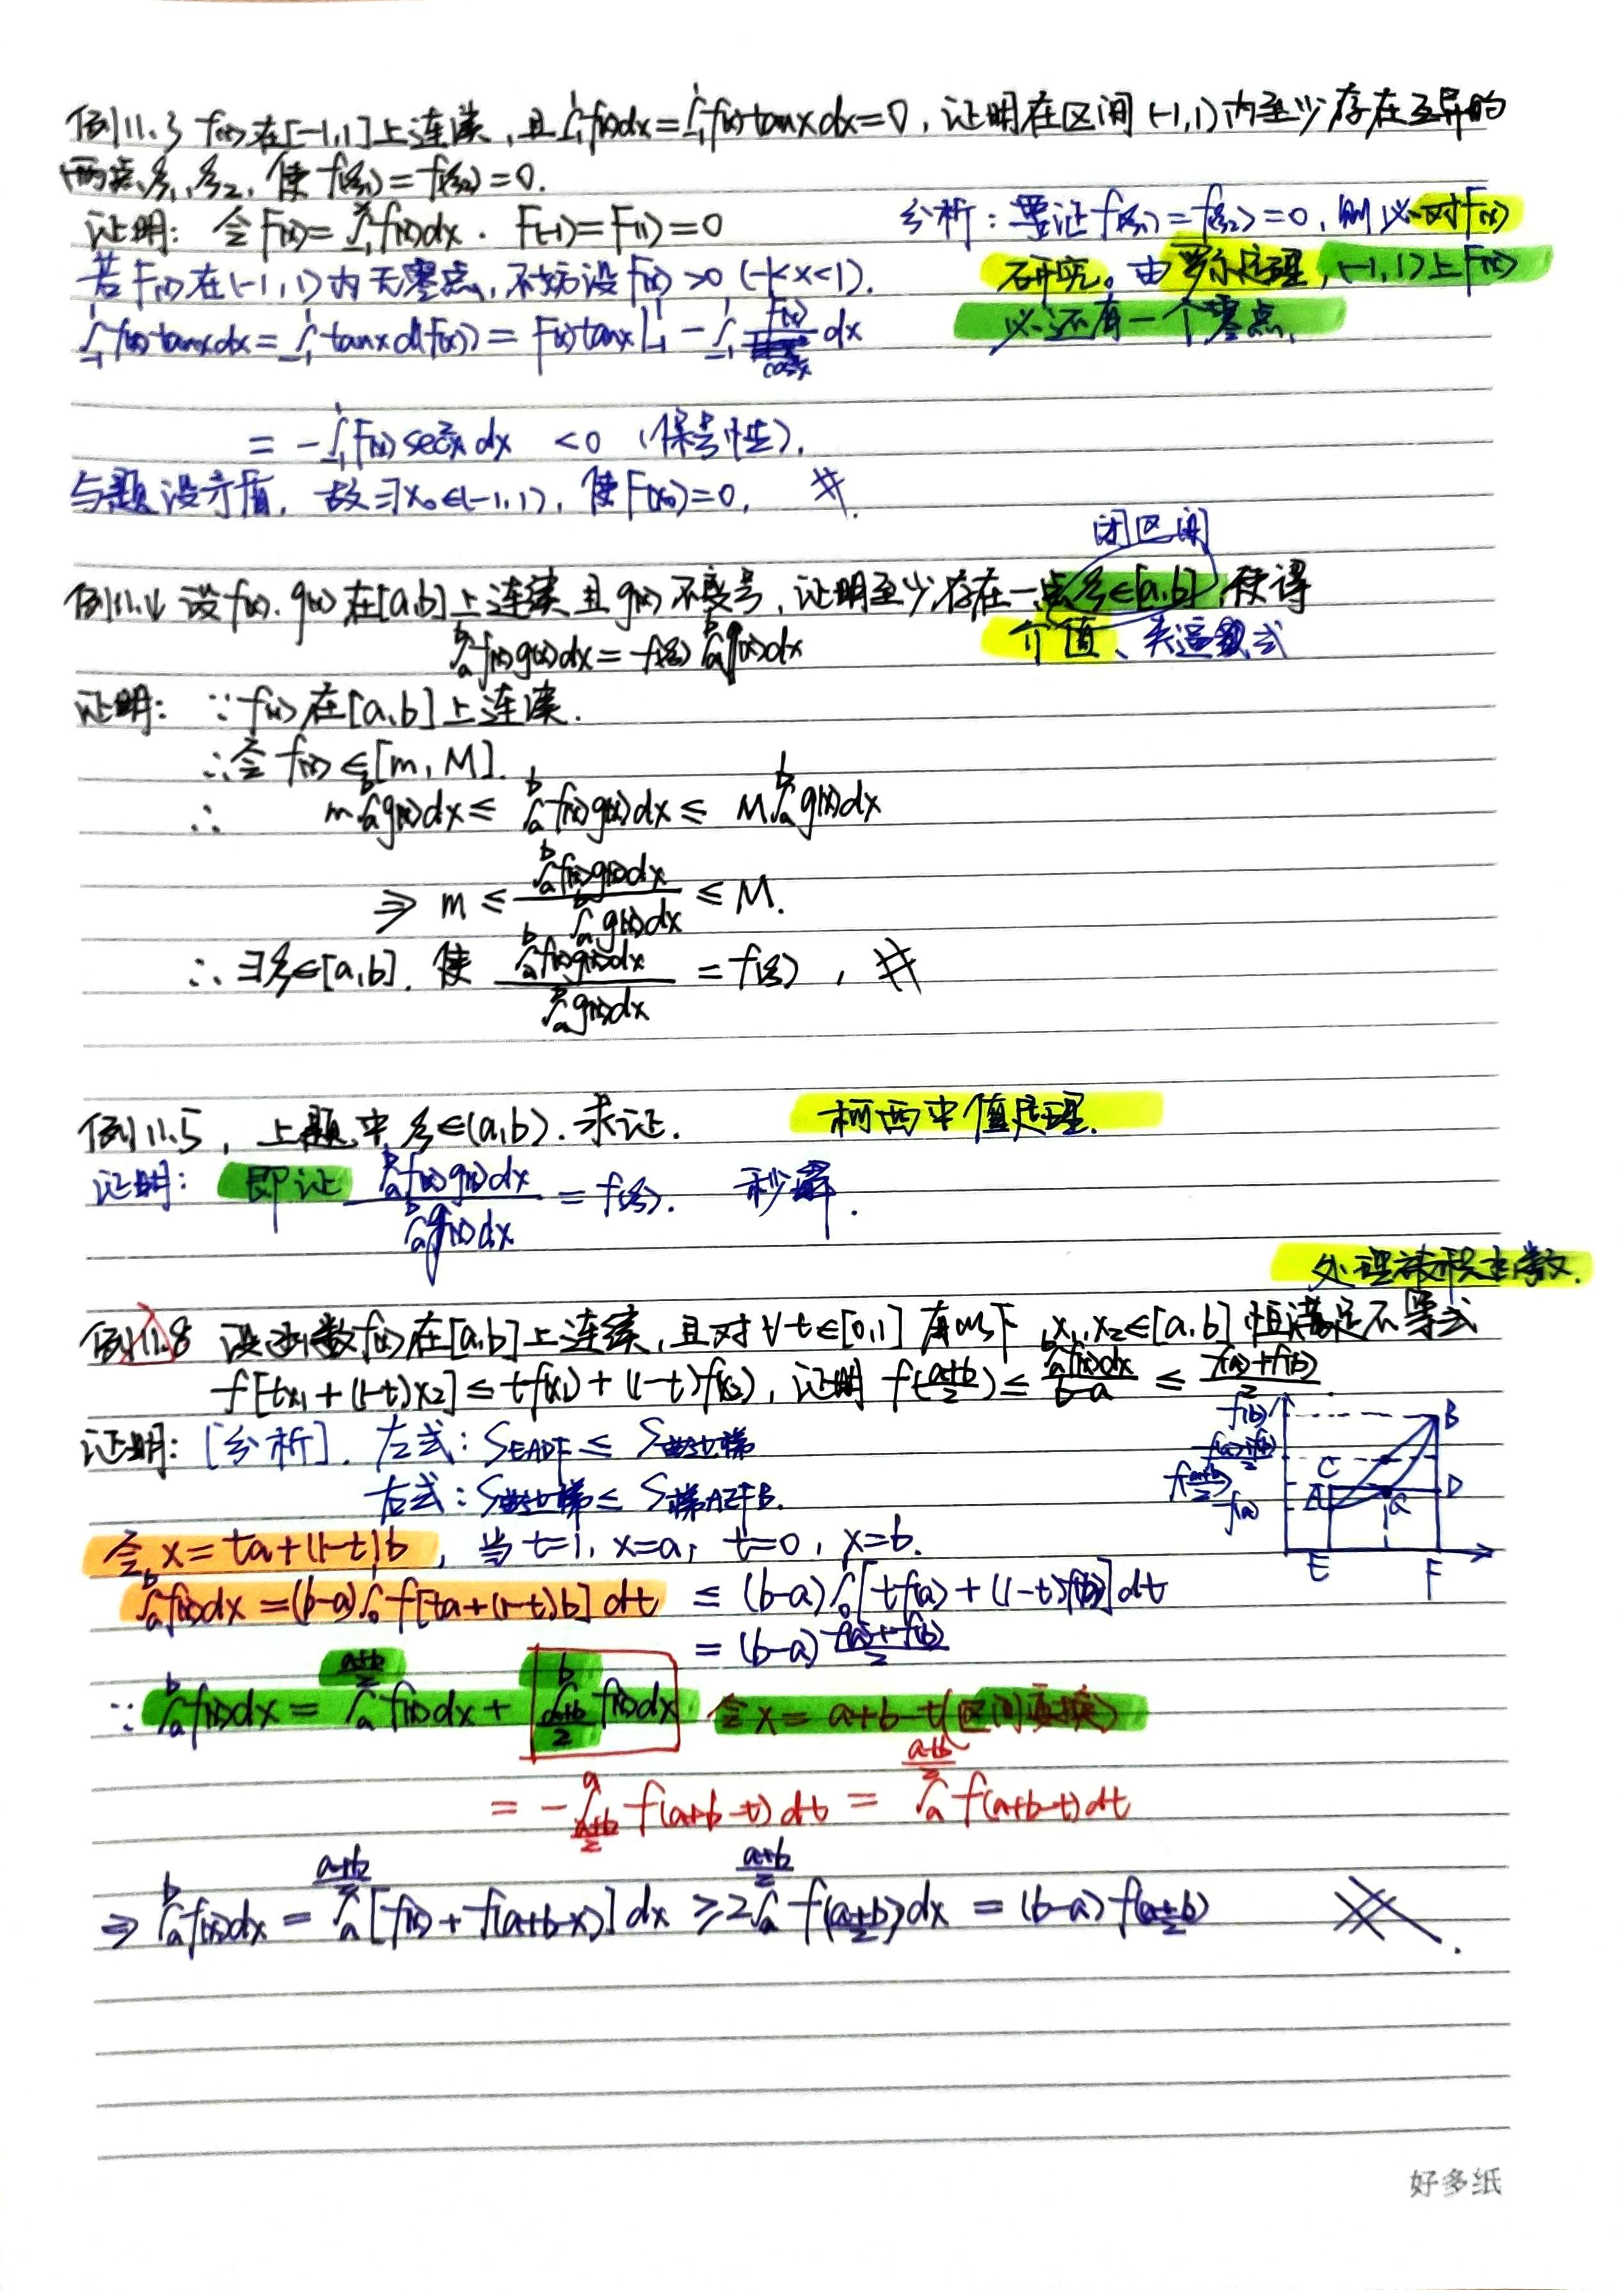 例11.3 f(x)在[-1,1]上连续,且∫₋₁¹f(x)dx=∫₋₁¹f(x)tanxdx=0,证明在区间(-1,1)内至少存在互异的
两点ξ₁,ξ₂,使f(ξ₁)=f(ξ₂)=0.
证明: 令F(x)=∫₋₁ˣf(x)dx. F(-1)=F(1)=0
分析:要证f(ξ₁)=f(ξ₂)=0,则必对F(x)
研究。由罗尔定理,(-1,1)上F(x)
必还有一个零点.
若F(x)在(-1,1)内无零点,不妨设F(x)>0 (-1<x<1).
∫₋₁¹f(x)tanxdx=∫₋₁¹tanxd(F(x))=F(x)tanx|₋₁¹-∫₋₁¹F(x)/cos²x dx
=-∫₋₁¹F(x)sec²xdx <0 (保号性).
与题设矛盾, 故∃x₀∈(-1,1), 使F(x₀)=0, #.
闭区间
例11.4 设f(x).g(x)在[a,b]上连续且g(x)不变号,证明至少存在一点ξ∈[a,b],使得
∫ₐᵇf(x)g(x)dx=f(ξ)∫ₐᵇg(x)dx
介值、夹逼 式
证明: ∵f(x)在[a,b]上连续.
∴令f(x)∈[m,M].
∴ m∫ₐᵇg(x)dx≤∫ₐᵇf(x)g(x)dx≤M∫ₐᵇg(x)dx
⇒ m≤∫ₐᵇf(x)g(x)dx/∫ₐᵇg(x)dx≤M.
∴∃ξ∈[a,b].使 ∫ₐᵇf(x)g(x)dx/∫ₐᵇg(x)dx=f(ξ), #
例11.5, 上题中ξ∈(a,b).求证. 柯西中值定理.
证明: 即证 ∫ₐᵇf(x)g(x)dx/∫ₐᵇg(x)dx=f(ξ). 秒解.
处理被积函数.
例11.8 设函数f(x)在[a,b]上连续,且对∀t∈[0,1]有以下 x₁,x₂∈[a,b]恒满足不等式
f[tx₁+(1-t)x₂]≤tf(x₁)+(1-t)f(x₂),证明f((a+b)/2)≤∫ₐᵇf(x)dx/(b-a)≤(f(a)+f(b))/2.
证明:[分析]. 左式:S_EADF≤S_曲边梯
右式:S_曲边梯≤S_梯AEFB.
f(b)
(f(a)+f(b))/2
f((a+b)/2)
f(a)
B
C
A
G
D
E
F
令x=ta+(1-t)b,当t=1,x=a; t=0,x=b.
∫ₐᵇf(x)dx=(b-a)∫₀¹f[ta+(1-t)b]dt ≤(b-a)∫₀¹[tf(a)+(1-t)f(b)]dt
=(b-a)(f(a)+f(b))/2
∵∫ₐᵇf(x)dx=∫ₐ^((a+b)/2)f(x)dx+∫_((a+b)/2)^b f(x)dx 令x=a+b-t(区间变换)
=-∫_((a+b)/2)^a f(a+b-t)dt=∫ₐ^((a+b)/2)f(a+b-t)dt
⇒∫ₐᵇf(x)dx=∫ₐ^((a+b)/2)[f(x)+f(a+b-x)]dx≥2∫ₐ^((a+b)/2)f((a+b)/2)dx=(b-a)f((a+b)/2) #.
好多纸